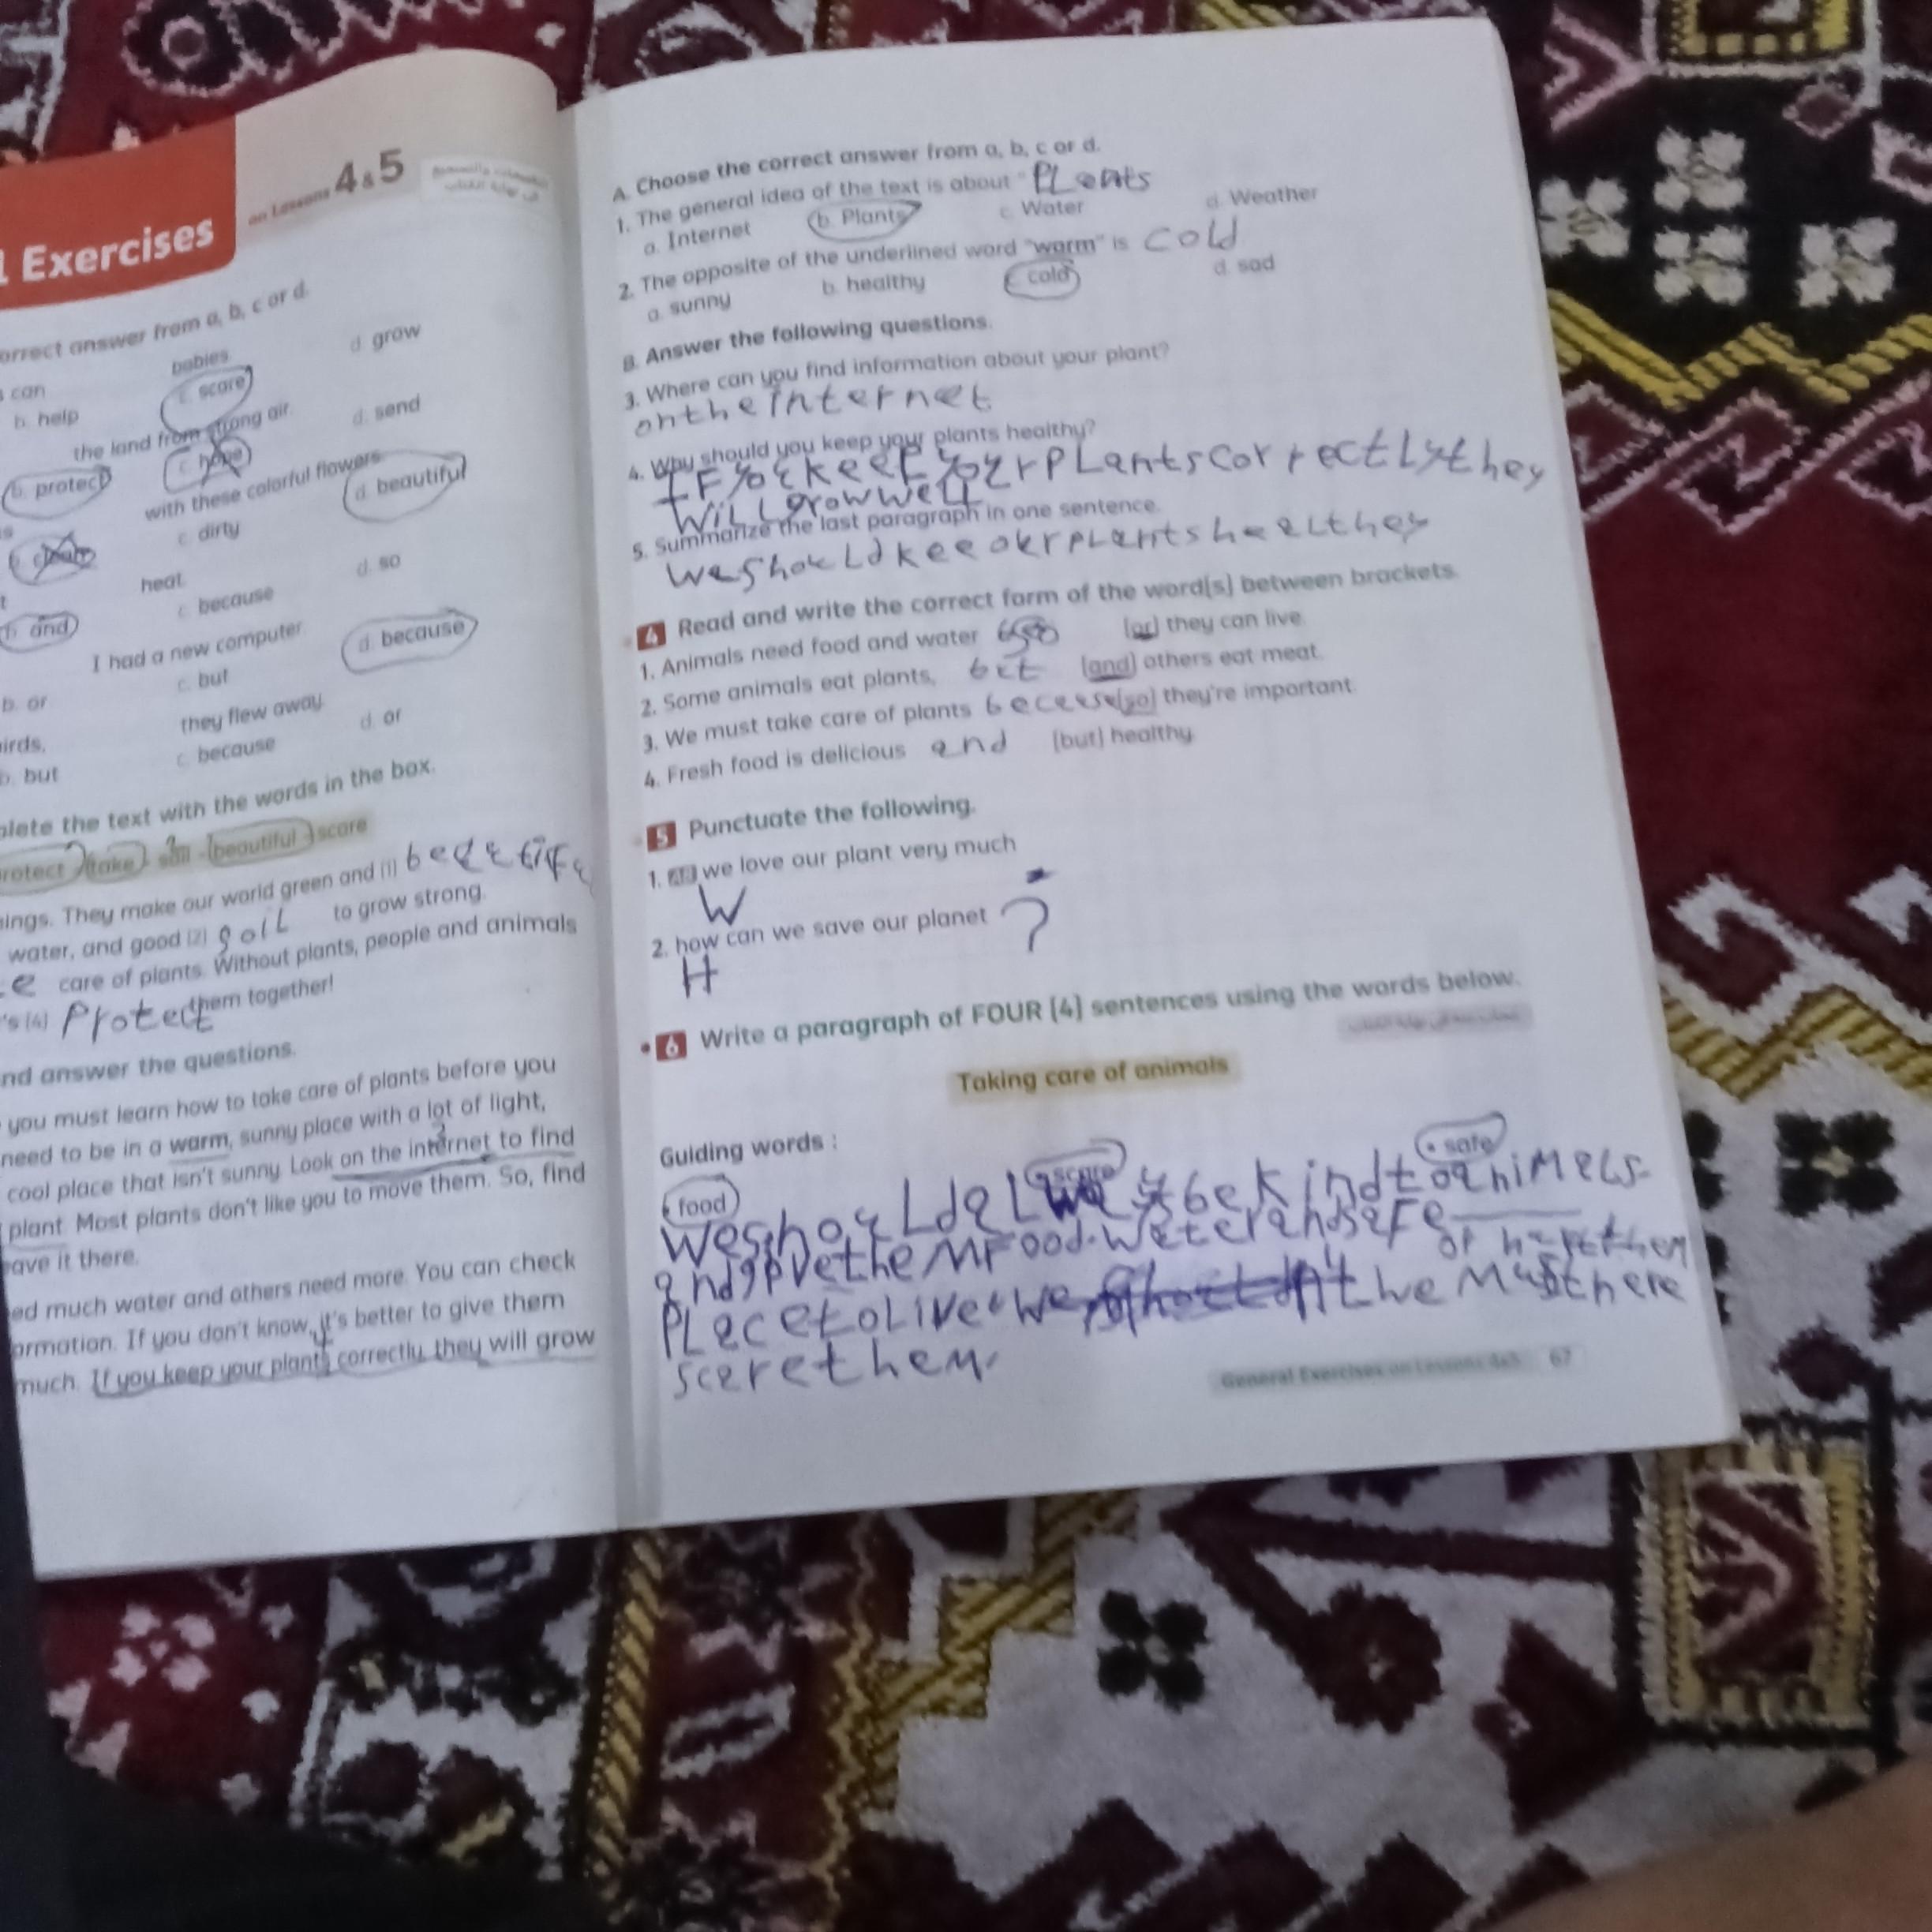 Exercises
on Lessons 4&5
orrect answer from a, b, c or d.
can babies.
b. help c. scare d. grow
the land from strong air.
b. protect c. hope d. send
with these colorful flowers.
c. dirty d. beautiful
heat.
b. and c. because d. so
I had a new computer.
b. or c. but d. because
irds, they flew away.
b. but c. because d. or
plete the text with the words in the box.
protect take soil beautiful scare
ings. They make our world green and (1)
water, and good (2) soil to grow strong.
e care of plants. Without plants, people and animals
's (4) Protect them together!
nd answer the questions.
you must learn how to take care of plants before you
need to be in a warm, sunny place with a lot of light,
cool place that isn't sunny. Look on the internet to find
plant. Most plants don't like you to move them. So, find
eave it there.
ed much water and others need more. You can check
ormation. If you don't know, it's better to give them
much. If you keep your plants correctly, they will grow
A. Choose the correct answer from a, b, c or d.
1. The general idea of the text is about " PLants
a. Internet b. Plants c. Water d. Weather
2. The opposite of the underlined word "warm" is cold
a. sunny b. healthy c. cold d. sad
B. Answer the following questions.
3. Where can you find information about your plant?
on the internet.
4. Why should you keep your plants healthy?
IF you keep your pLants correctLy they
WiLL grow well
5. Summarize the last paragraph in one sentence.
We shouLd kee our pLants healthey
4 Read and write the correct form of the word(s) between brackets.
1. Animals need food and water so (or) they can live.
2. Some animals eat plants, but (and) others eat meat.
3. We must take care of plants (so) they're important.
4. Fresh food is delicious and (but) healthy.
5 Punctuate the following.
1. we love our plant very much .
W
2. how can we save our planet ?
H
6 Write a paragraph of FOUR (4) sentences using the words below.
Taking care of animals
Guiding words :
• food • scare • safe
We shouLd be kind to aniMaLs.
and give theM Food. water and saFe
or them
PLace to Live. we we Must
scare them.
General Exercises on Lessons 4&5 67